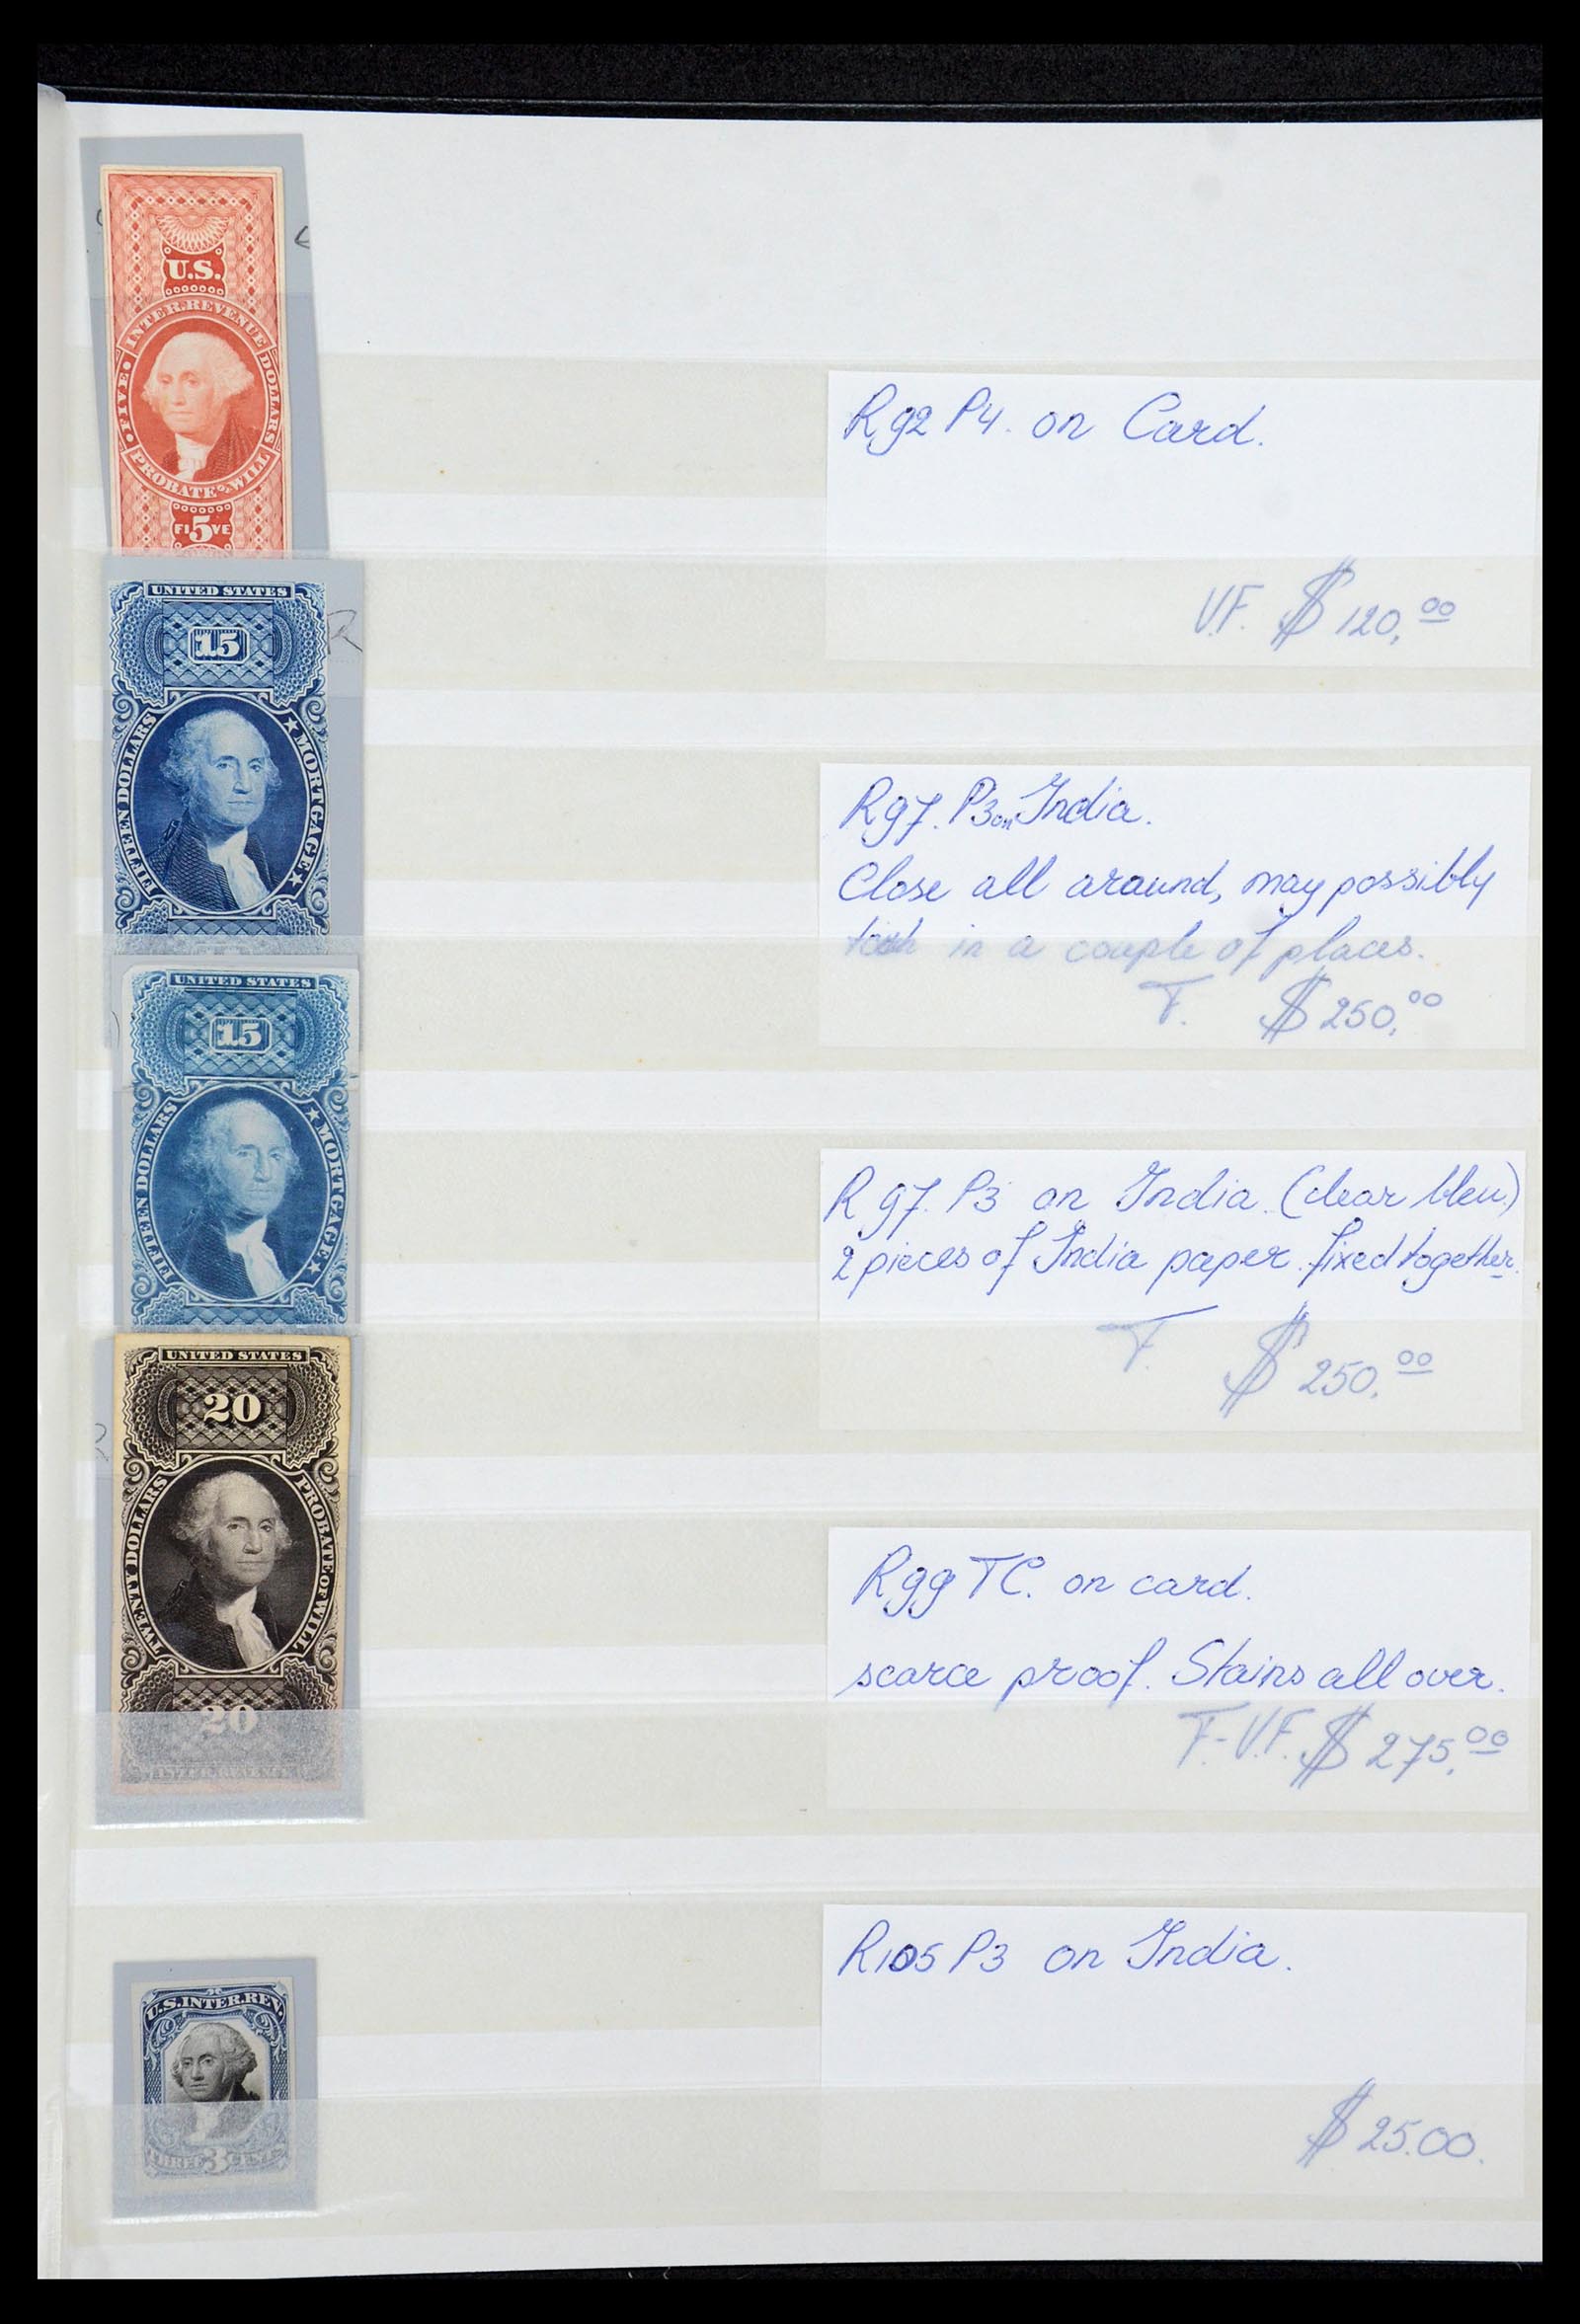 U.S.
INTER. REVENUE
FIVE
DOLLARS
PROBATE OF WILL
FI5VE
R92 P4. on Card.
V.F. $120,00
UNITED STATES
15
FIFTEEN DOLLARS
MORTGAGE
R97. P3 on India.
Close all around, may possibly
in a couple of places.
F. $250,00
UNITED STATES
15
FIFTEEN DOLLARS
MORTGAGE
R97. P3 on India. (clear bleu)
2 pieces of India paper fixed together.
F. $250.00
UNITED STATES
20
TWENTY DOLLARS
PROBATE OF WILL
20
INTER. REVENUE
R99 TC. on card.
scarce proof. Stains all over.
F.-V.F. $275.00
U.S. INTER. REV.
THREE 3 CENTS
R105 P3 on India.
$25.00.